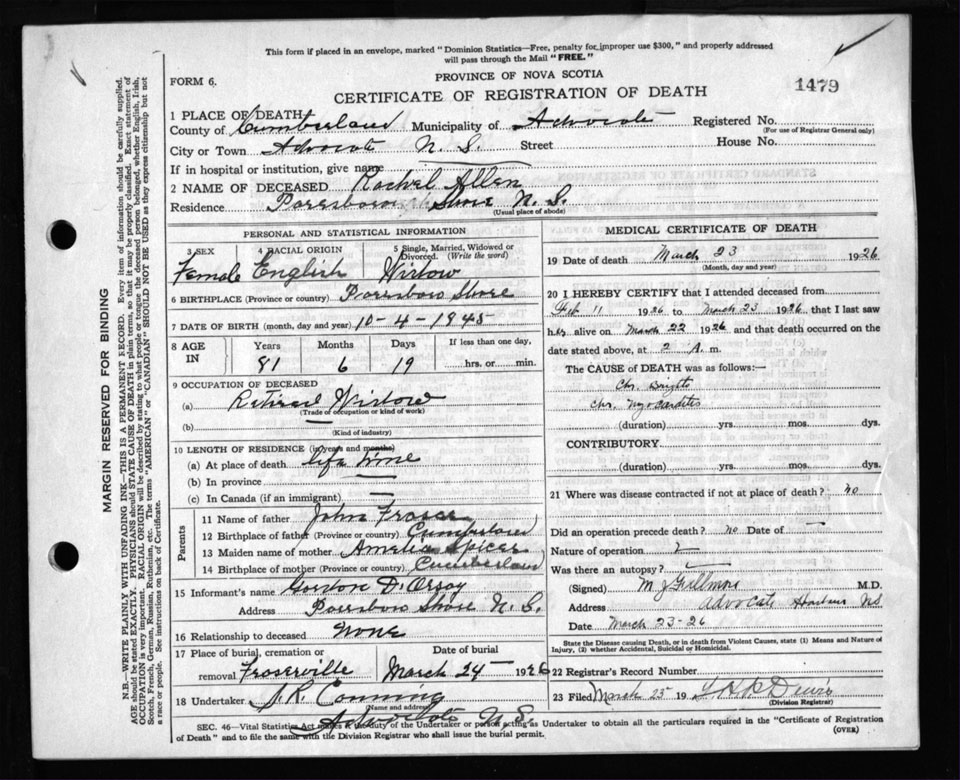 This form if placed in an envelope, marked "Dominion Statistics—Free, penalty for improper use $300," and properly addressed
will pass through the Mail "FREE."
PROVINCE OF NOVA SCOTIA
FORM 6.
1479
CERTIFICATE OF REGISTRATION OF DEATH
1 PLACE OF DEATH
County of Cumberland Municipality of Advocate Registered No.
(For use of Registrar General only)
City or Town Advocate N. S. Street House No.
If in hospital or institution, give name
2 NAME OF DECEASED Rachel Allen
Residence Parrsboro Shore N. S.
(Usual place of abode)
PERSONAL AND STATISTICAL INFORMATION
3 SEX 4 RACIAL ORIGIN 5 Single, Married, Widowed or Divorced. (Write the word)
Female English Widow
6 BIRTHPLACE (Province or country) Parrsboro Shore
7 DATE OF BIRTH (month, day and year) 10-4-1845
8 AGE IN Years Months Days If less than one day,
81 6 19 hrs. or min.
9 OCCUPATION OF DECEASED
(a) Retired Widow
(Trade or occupation or kind of work)
(b)
(Kind of industry)
10 LENGTH OF RESIDENCE (in years and months)
(a) At place of death life time
(b) In province —
(c) In Canada (if an immigrant) —
Parents
11 Name of father John Fraser
12 Birthplace of father (Province or country) Cumberland
13 Maiden name of mother Amelia Spicer
14 Birthplace of mother (Province or country) Cumberland
15 Informant's name Gordon D'Orsay
Address Parrsboro Shore N. S.
16 Relationship to deceased None
17 Place of burial, cremation or removal Date of burial
Fraserville March 24 — 1926
18 Undertaker J R Conning
(Name and address)
Advocate N. S.
MEDICAL CERTIFICATE OF DEATH
19 Date of death March 23 1926
(Month, day and year)
20 I HEREBY CERTIFY that I attended deceased from
Feb 11 1926 to March 23 1926 that I last saw
her alive on March 22 1926 and that death occurred on the
date stated above, at 2 A. m.
The CAUSE of DEATH was as follows:—
Chr. Brights
Chr. Myocarditis
(duration) yrs. mos. dys.
CONTRIBUTORY
(duration) yrs. mos. dys.
21 Where was disease contracted if not at place of death? no
Did an operation precede death? no Date of —
Nature of operation
Was there an autopsy? —
(Signed) M J Fillmore M.D.
Address Advocate Harbour NS
Date March 23-26
State the Disease causing Death, or in death from Violent Causes, state (1) Means and Nature of
Injury, (2) whether Accidental, Suicidal or Homicidal.
22 Registrar's Record Number
23 Filed March 25 19
(Division Registrar)
SEC. 46—Vital Statistics Act makes it the duty of the Undertaker or person acting as Undertaker to obtain all the particulars required in the "Certificate of Registration
of Death" and to file the same with the Division Registrar who shall issue the burial permit.
(OVER)
MARGIN RESERVED FOR BINDING
N.B.—WRITE PLAINLY WITH UNFADING INK—THIS IS A PERMANENT RECORD. Every item of information should be carefully supplied.
AGE should be stated EXACTLY. PHYSICIANS should STATE CAUSE OF DEATH in plain terms, so that it may be properly classified. Exact statement of
OCCUPATION is very important. RACIAL ORIGIN will be described by stating to what people or tongue the deceased person belonged, whether English, Irish,
Scotch, French, German, Russian, Ruthenian, etc. The terms "AMERICAN" or "CANADIAN" SHOULD NOT BE USED as they express citizenship but not
a race or people. See instructions on back of Certificate.